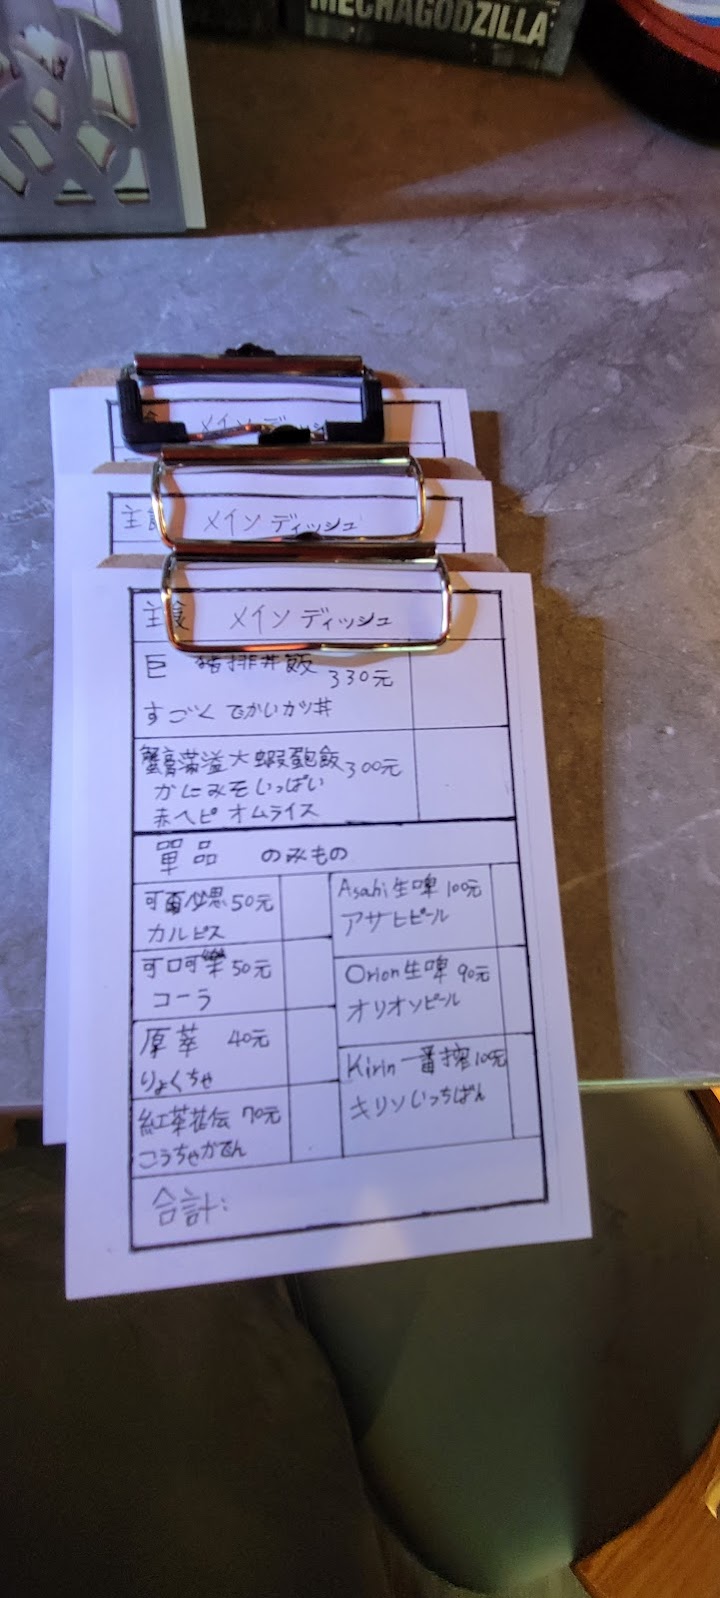 MECHAGODZILLA
メインディッシュ
主 メインディッシュ
主食 メインディッシュ
巨 豬排丼飯 330元
すごく でかいカツ丼
蟹膏滿溢大蝦蛋包飯 300元
かにみそいっぱい
赤ヘビ オムライス
單品 のみもの
可爾必思 50元
カルピス
可口可樂 50元
コーラ
原萃 40元
りょくちゃ
紅茶花伝 70元
こうちゃかでん
Asahi生啤 100元
アサヒビール
Orion生啤 90元
オリオンビール
Kirin一番搾 100元
キリンいっちばん
合計: